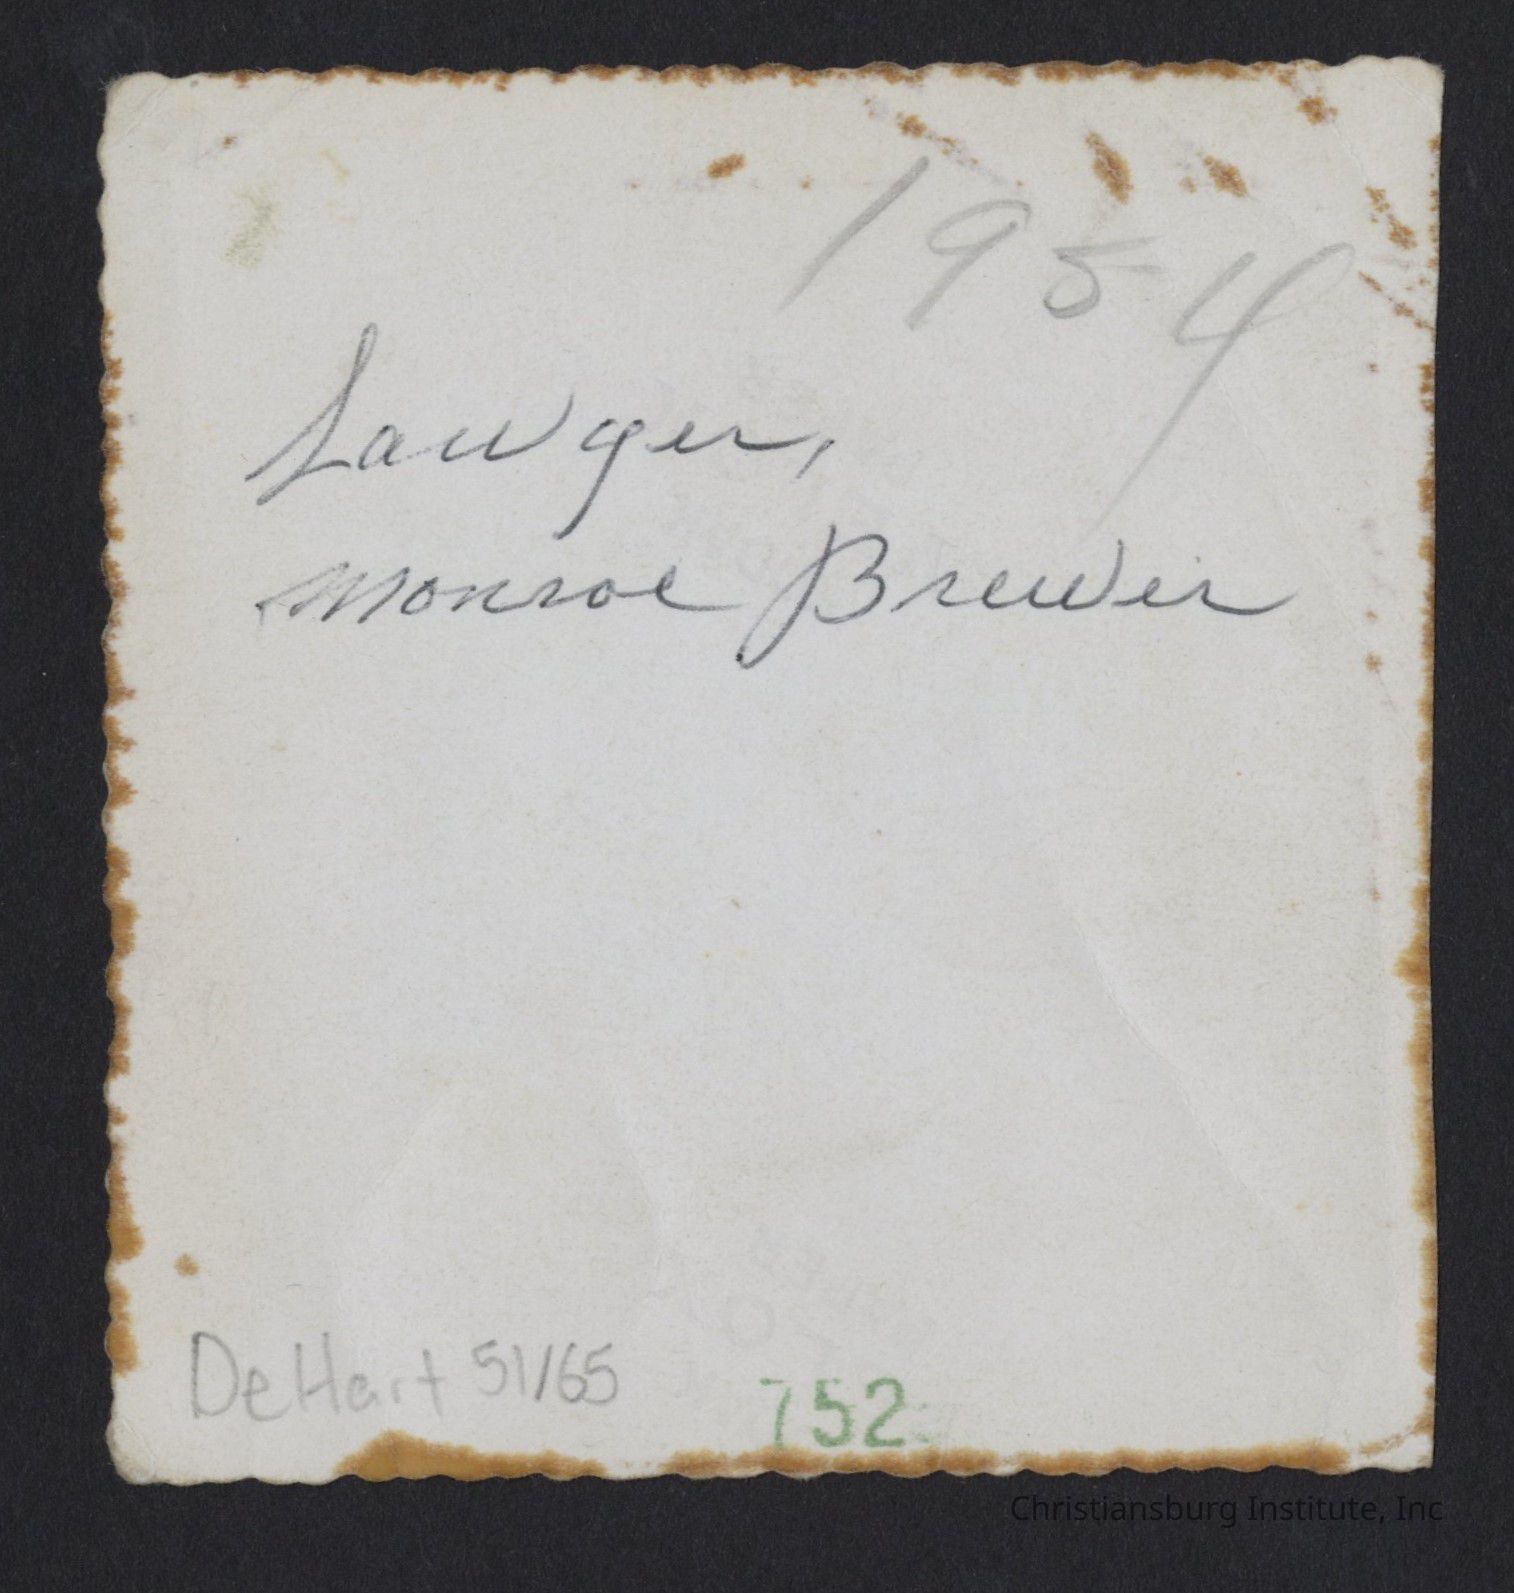 1954
Lawyer,
Monroe Brewer
DeHart 51/65
752
Christiansburg Institute, Inc